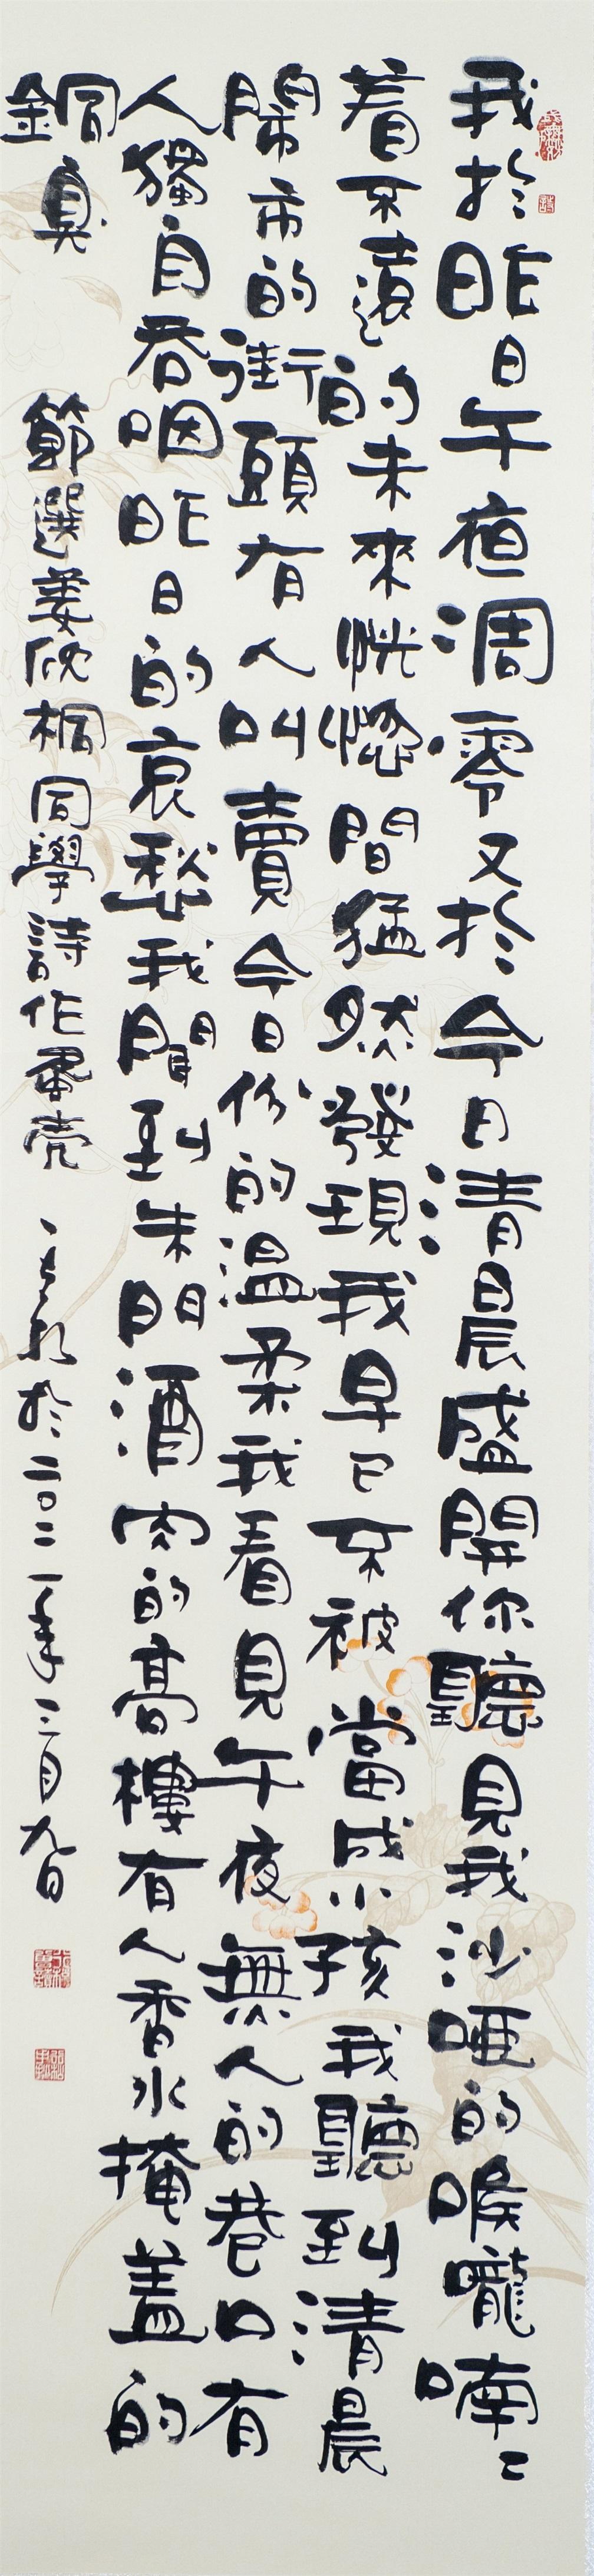 我於昨日午夜凋零又於今日清晨盛開你聽見我沙啞的喉嚨喃〻
着不遠的未來恍惚間猛然發現我早已不被當成小孩我聽到清晨
鬧市的街頭有人叫賣今日份的溫柔我看見午夜無人的巷口有
人獨自吞咽昨日的哀愁我聞到朱門酒肉的高樓有人香水掩蓋的
銅臭
節選姜欣桐同學詩作 於二〇二一年三月九日